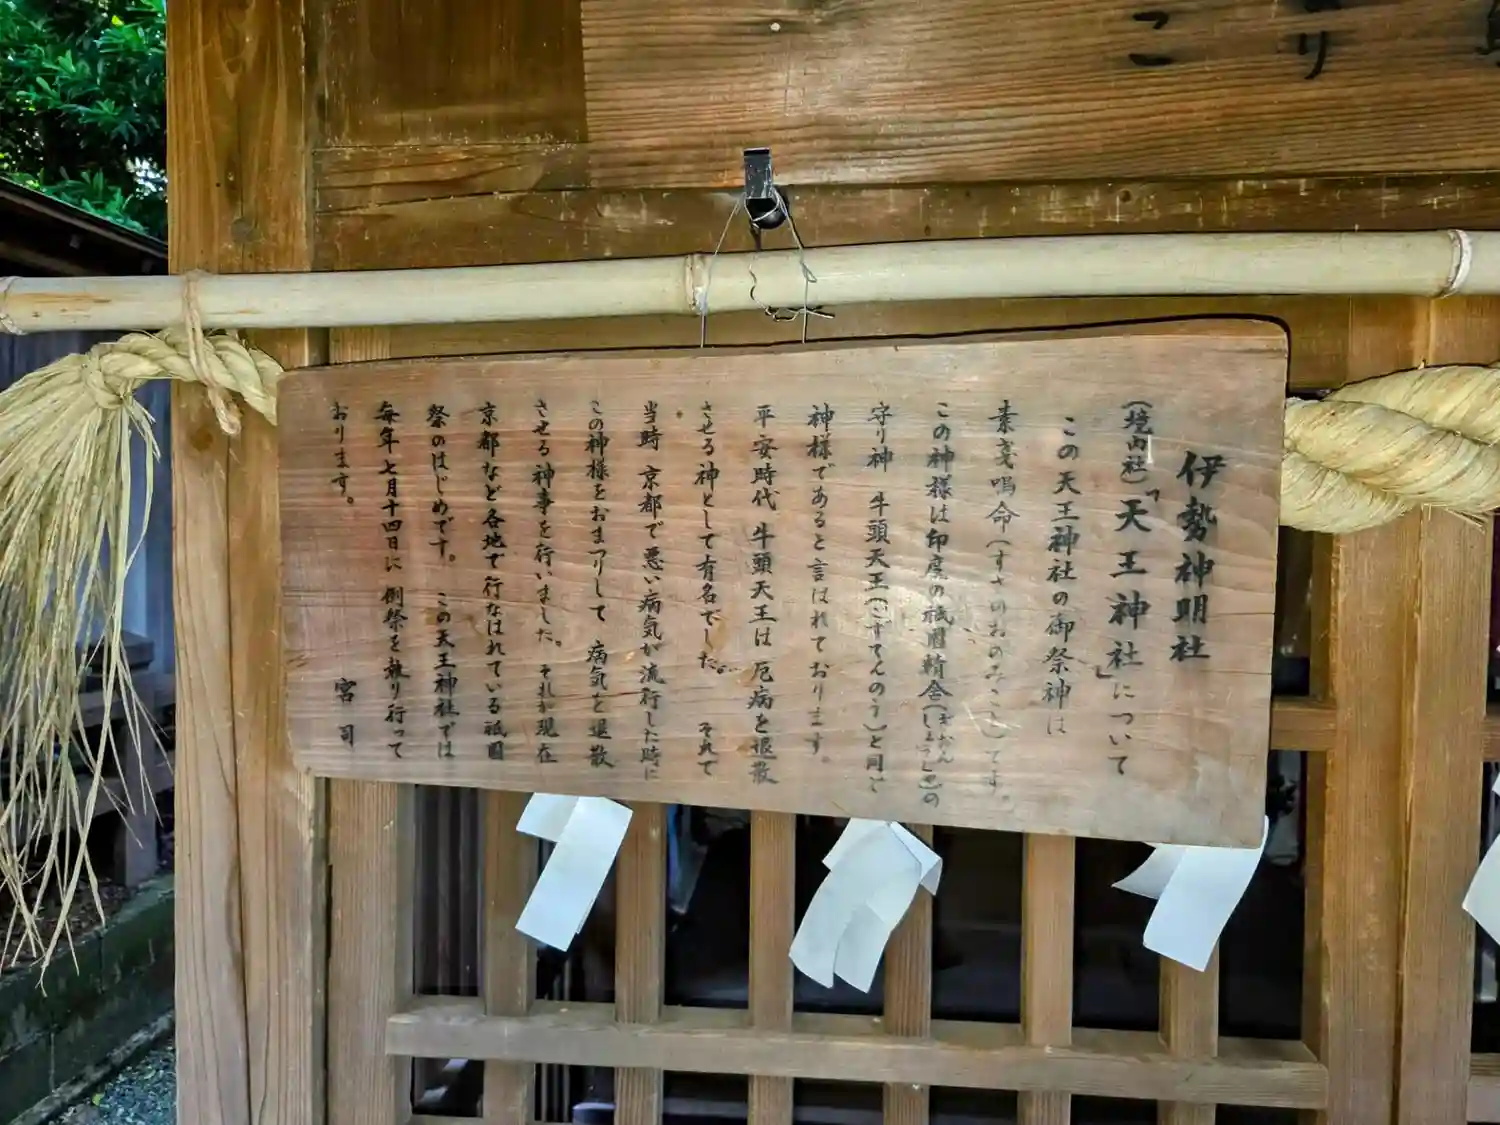 伊勢神明社
（境内社）「天王神社」について
この天王神社の御祭神は
素戔嗚命（すさのおのみこと）です。
この神様は印度の祇園精舎（ぎおんしょうじゃ）の
守り神 牛頭天王（ごずてんのう）と同じ
神様であると言はれております。
平安時代 牛頭天王は 厄病を退散
させる神として有名でした。 それで
当時 京都で悪い病気が流行した時に
この神様をおまつりして 病気を退散
させる神事を行いました。それが現在
京都など各地で行なはれている祇園
祭のはじめです。 この天王神社では
毎年七月十四日に 例祭を執り行って
おります。
宮司